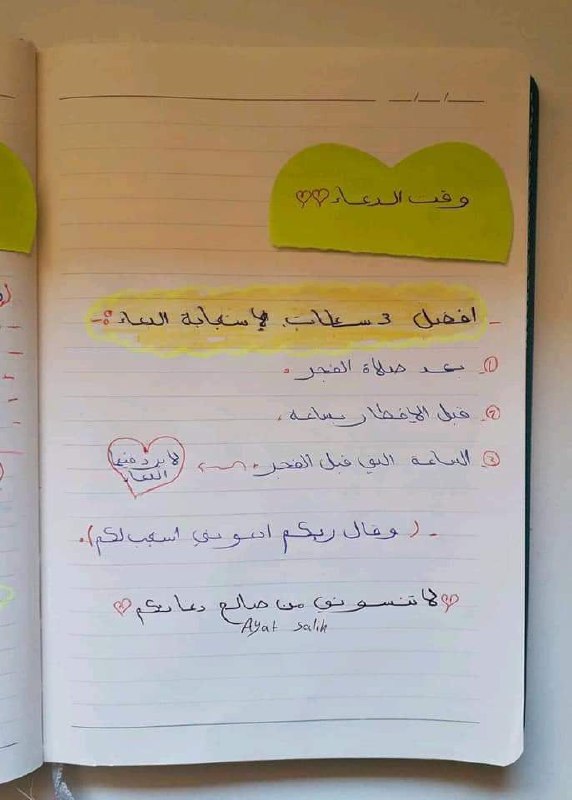 وقت الدعاء
- افضل 3 ساعات لإستجابة الدعاء :-
①- بعد صلاة الفجر .
②- قبل الإفطار بساعة .
③- الساعة التي قبل الفجر .
لا يرد فيها
الدعاء
- ( وقال ربكم ادعوني استجب لكم ) .
لا تنسوني من صالح دعائكم
Ayat salih